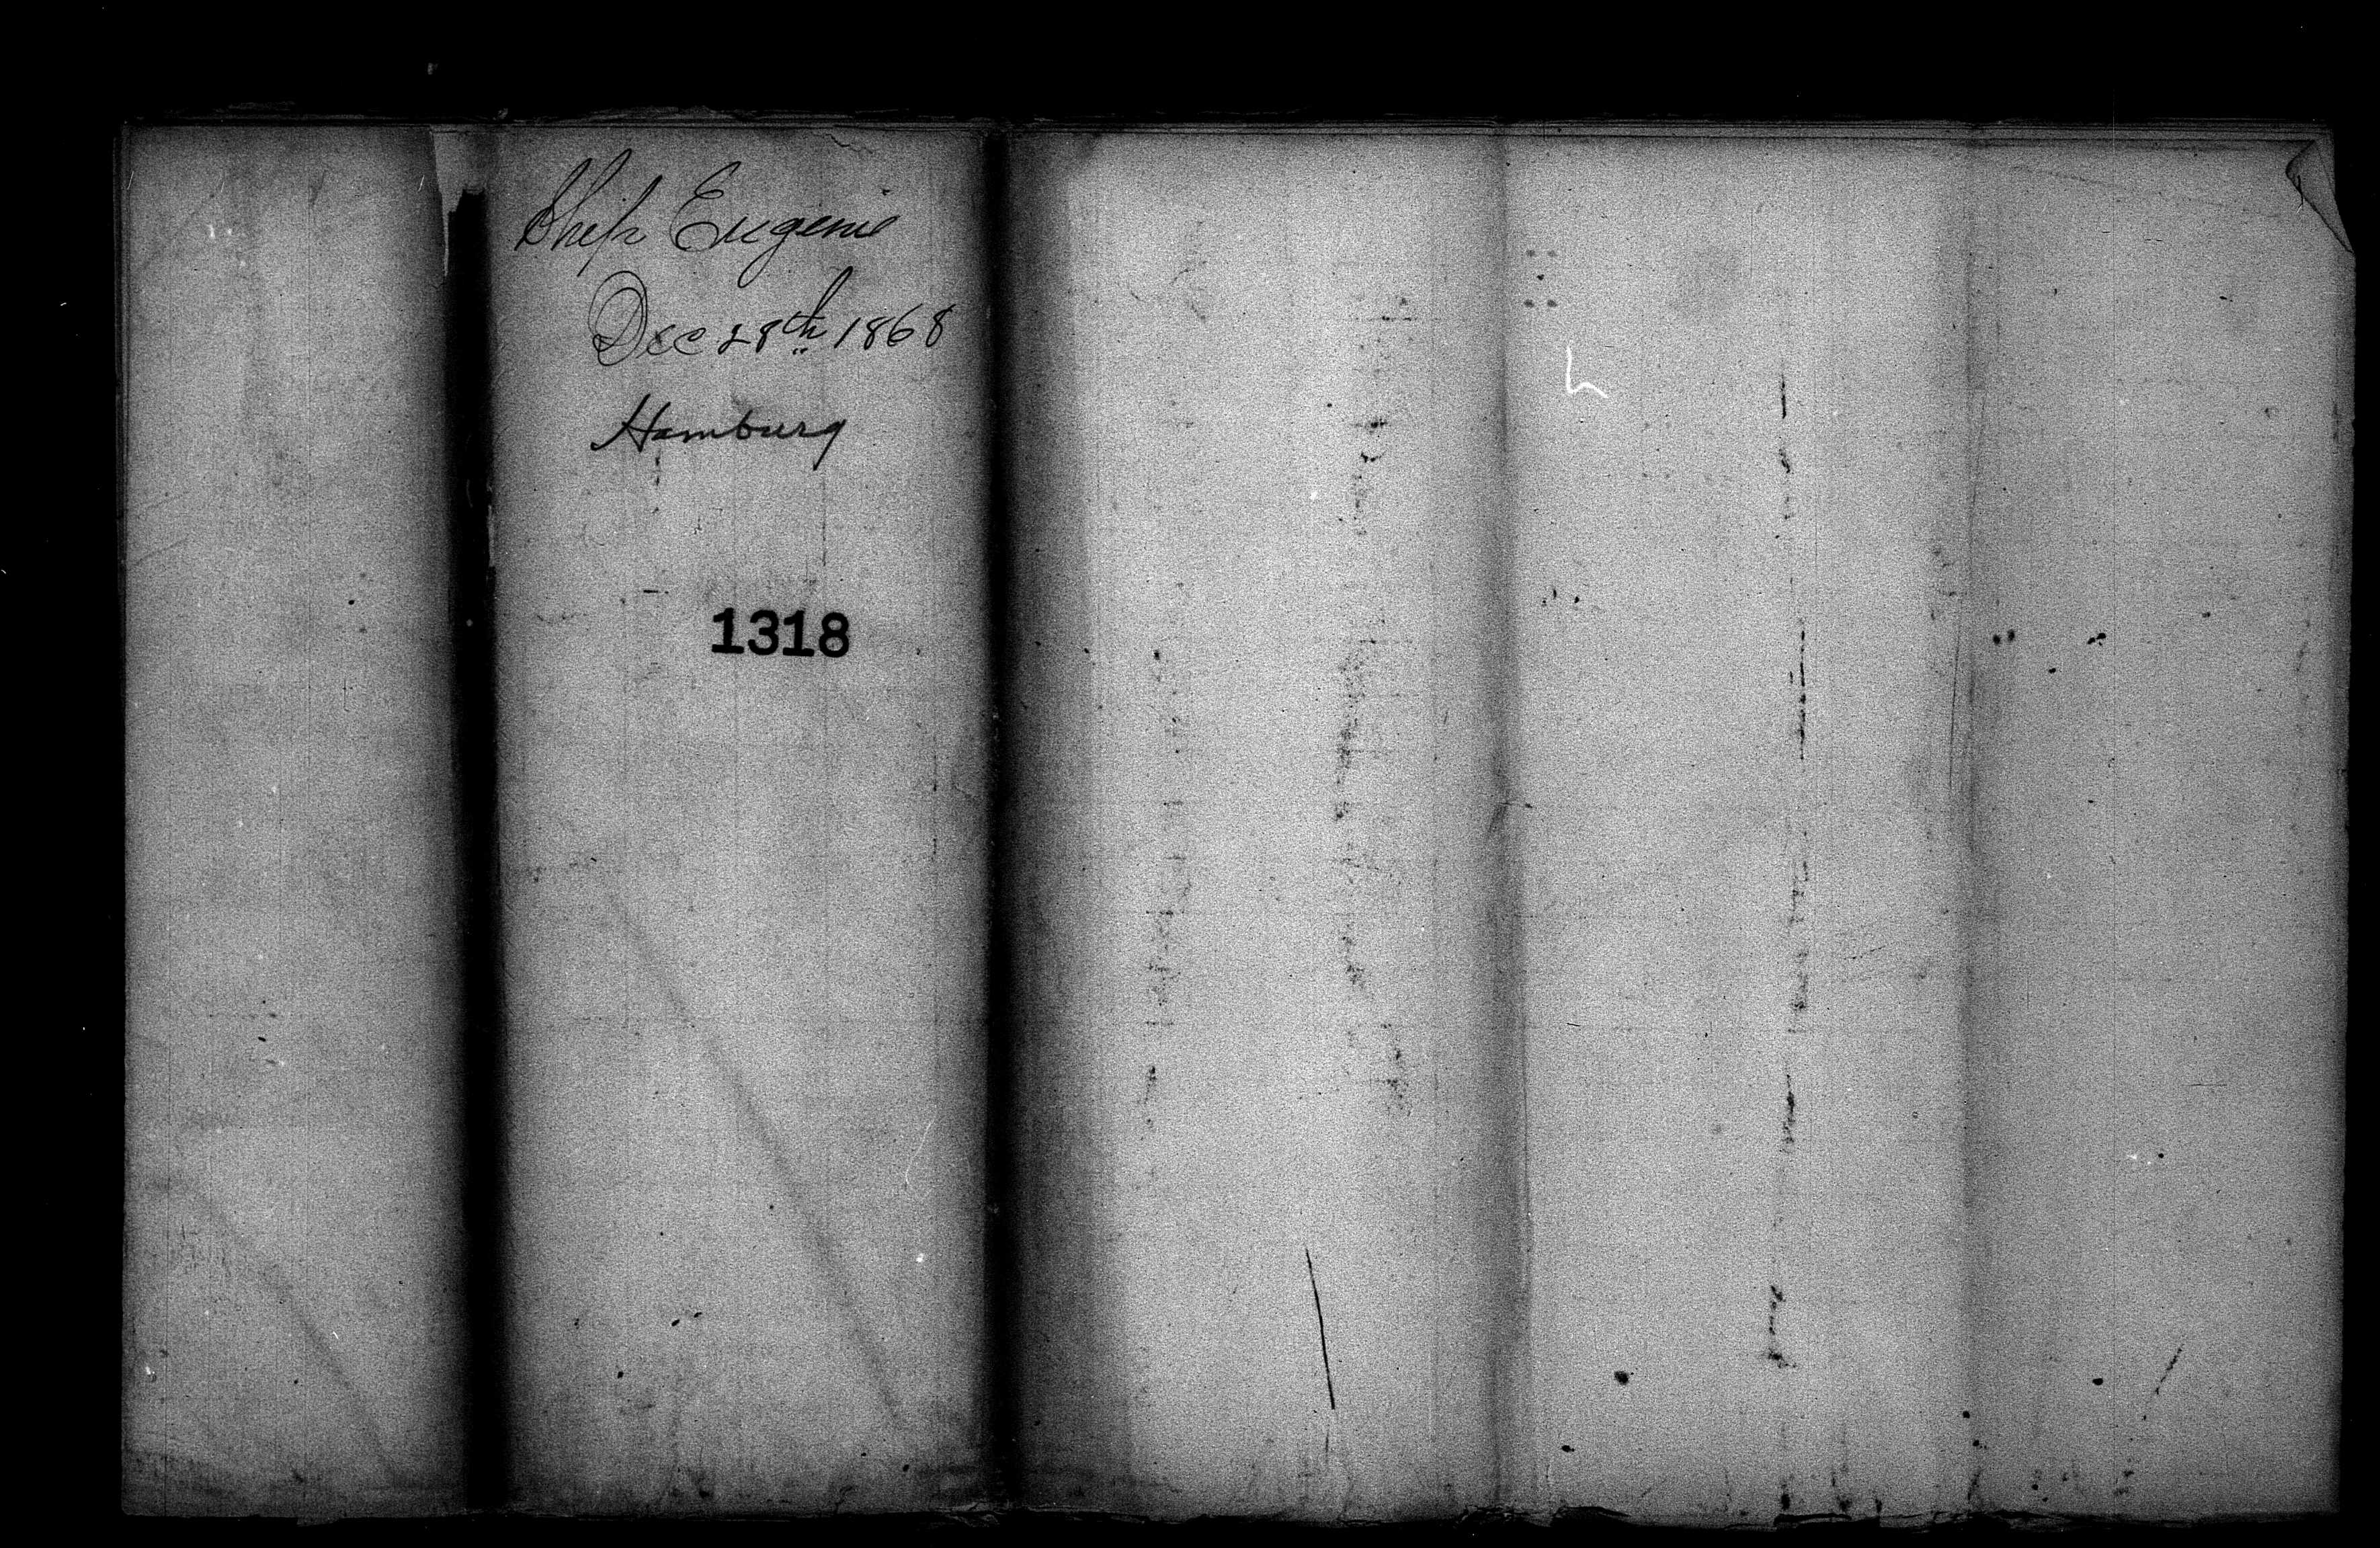 Ship Eugenie
Dec 28th 1868
Hamburg
1318